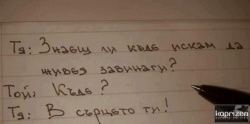 Тя: Знаеш ли къде искам да
живея завинаги?
Той: Къде?
Тя: В сърцето ти!
kaprizen